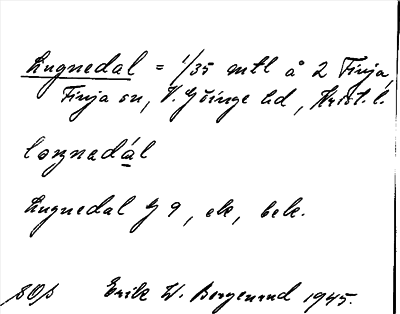 Lugnedal = 1/35 mtl å 2 Finja,
Finja sn, V. Göinge hd, Krist. l.
loŋnadál
Lugnedal G 9, ek, bek.
SOs Erik W. Borgenrud 1945.